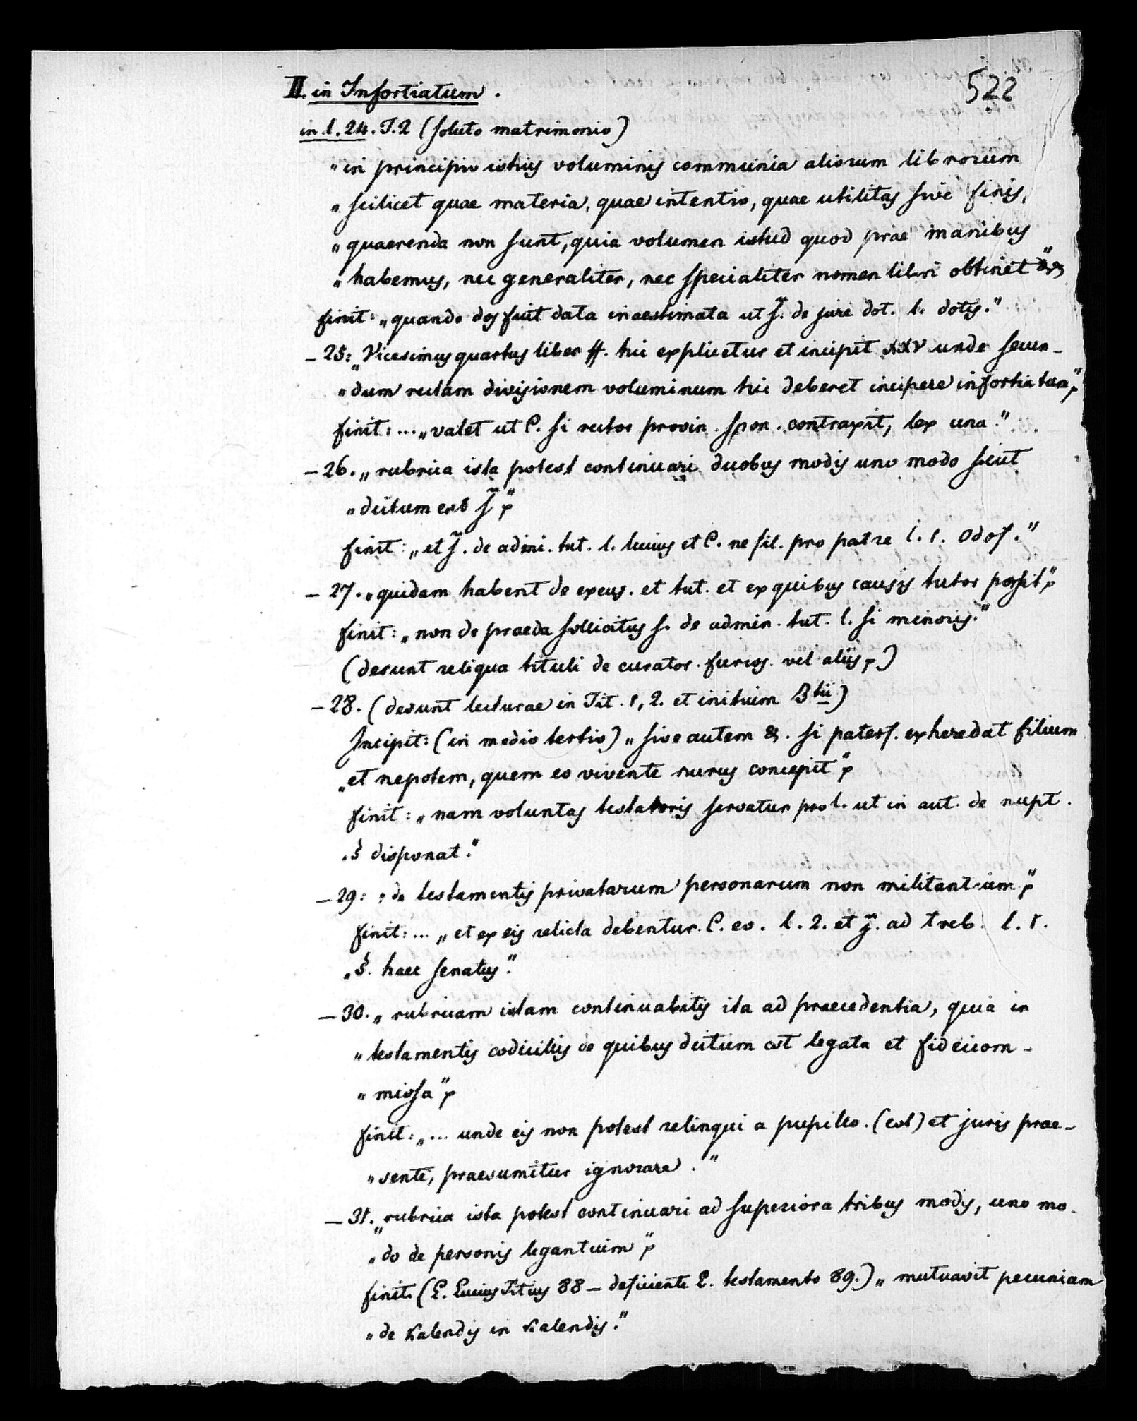 522
II. in Infortiatum.
in l. 24. T. 2 (soluto matrimonio)
„in principio istius voluminis communia aliorum librorum
„scilicet quae materia, quae intentio, quae utilitas sive finis,
„quaerenda non sunt, quia volumen istud quod prae manibus
„habemus, nec generaliter, nec specialiter nomen libri obtinet“
finit: „quando dos fuit data inaestimata ut j. de jure dot. l. dotis.“
– 25: „Vicesimus quartus liber ff. hic explicetur et incipit XXV unde secun-
„dum rectam divisionem voluminum hic deberet incipere infortiatum“
finit: ... „valet ut C. si rector provin. spon. contraxit, lex una.“
– 26. „rubrica ista potest continuari duobus modis uno modo sicut
„dictum est j“
finit: „et j. de admi. tut. l. lucius et C. ne fil. pro patre l. 1. Odof.“
– 27. „quidam habent de excus. et tut. et ex quibus causis tutor possit“
finit: „non de praeda sollicitus s. de admin. tut. l. si minoris.“
(desunt reliqua tituli de curator. furios. vel aliis)
– 28. (desunt lecturae in Tit. 1, 2. et initium 3tii)
Incipit: (in medio tertio) „sive autem &. si paterf. exheredat filium
„et nepotem, quem eo vivente nurus concepit“
finit: „nam voluntas testatoris servatur prol. ut in aut. de nupt.
„§ disponat.“
– 29: „de testamentis privatarum personarum non militantium“
finit: ... „et ex eis relicta debentur. C. eo. l. 2. et j. ad treb. l. 1.
„§. haec senatus“.
– 30. „rubricam istam continuabitis ita ad praecedentia, quia in
„testamentis codicillis de quibus dictum est legata et fideicom-
„missa“
finit: „... unde eis non potest relinqui a pupillo. (est) et juris prae-
„sente, praesumitur ignorare.“
– 31. „rubrica ista potest continuari ad superiora tribus modis, uno mo-
„do de personis legantium“
finit. (L. Lucius Titius 88 – deficiente L. testamento 89.) „mutuavit pecuniam
„de kalendis in kalendis.“